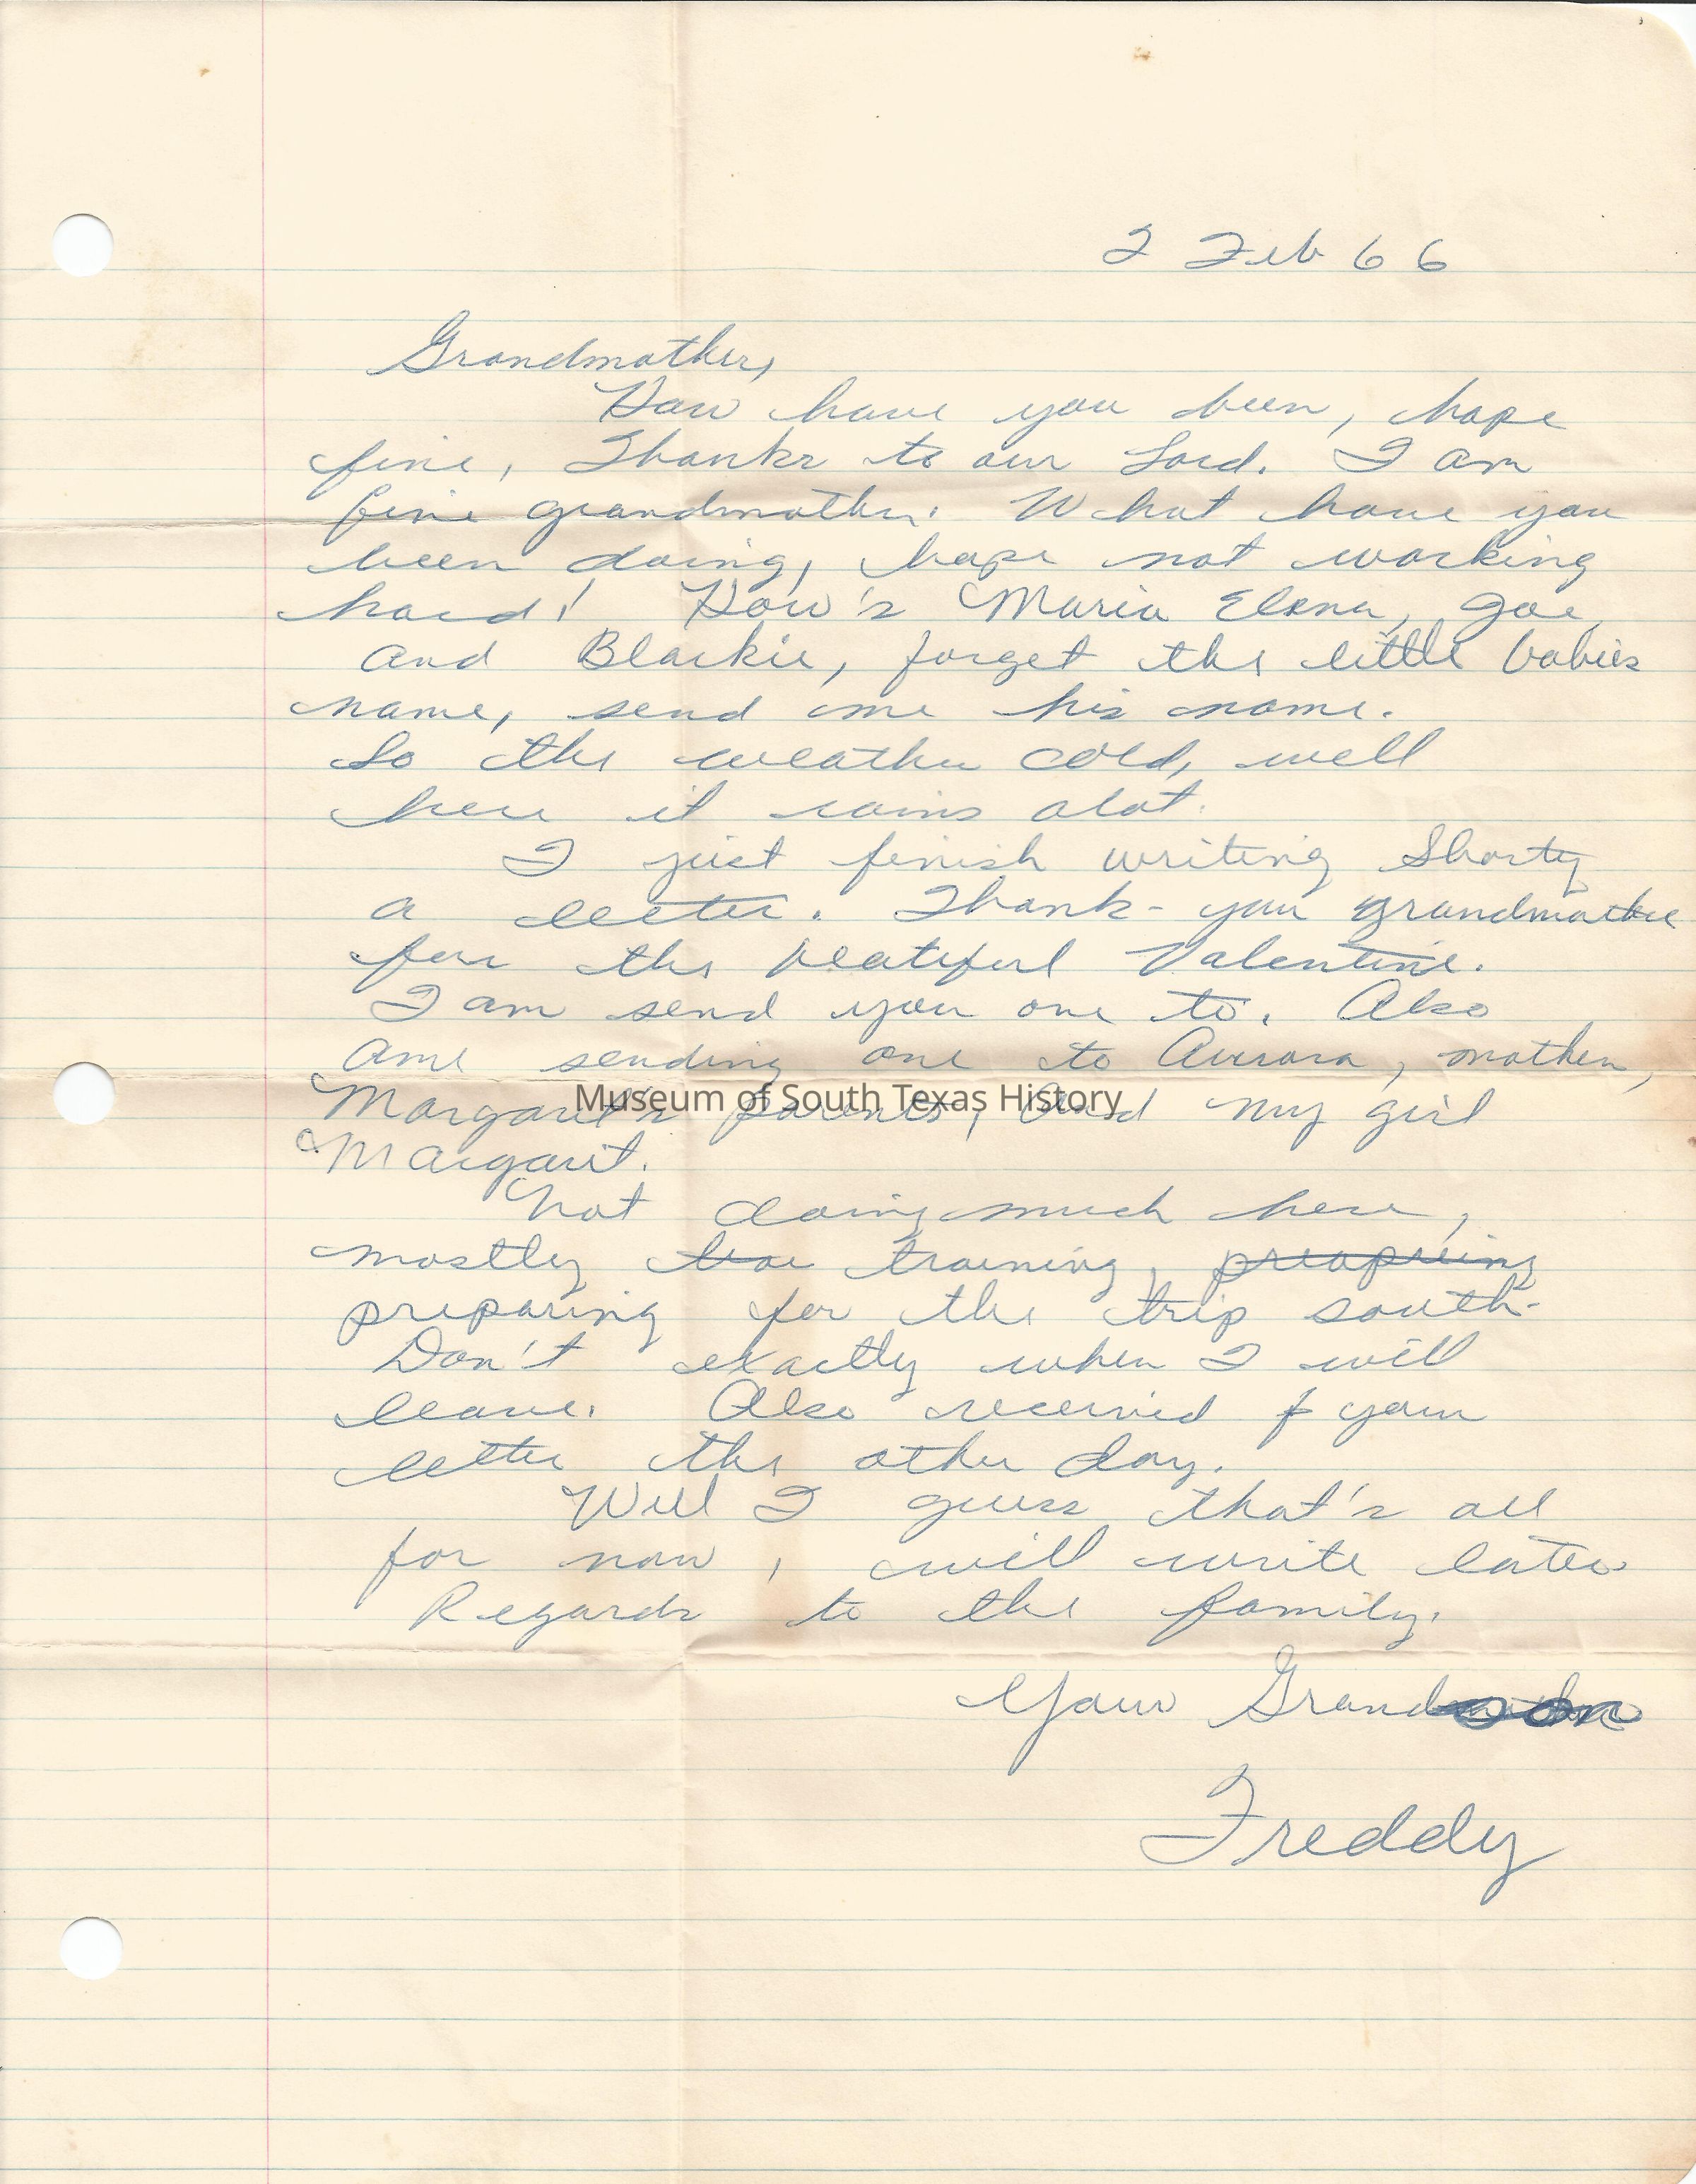 2 Feb 66
Grandmother,
How have you been, hope
fine, Thanks to our Lord. I am
fine grandmother. What have you
been doing, hope not working
hard! How's Maria Elena, Joe,
and Blackie, forget the little babies
name, send me his name.
So the weather cold, well
here it rains alot.
I just finish writing Shorty
a letter. Thank-you grandmother
for the beatiful Valentine.
I am send you one to. Also
ame sending one to Aurora, mother,
Margaret's parents, and my girl
Museum of South Texas History
Margaret.
Not doing much here,
mostly training,
preparing for the trip south.
Don't exactly when I will
leave. Also received your
letter the other day.
Well I guess that's all
for now, will write later
Regards to the family.
Your Grandson
Freddy